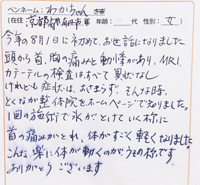 ペンネーム: わかちゃん さま
(在住 京都府 市 年齢: 代 性別: 女)
今年の8月1日に初めて、お世話になりました
頭から首、胸の痛みと動悸があり、MRI、
カテーテルの検査はすべて異状なし
けれども症状は、おさまらず、そんな時、
とくなが整体院をホームページで知りました。
1回の施術で氷がとけていく様に
首の痛みがとれ、体がすごく軽くなりました
こんな楽に体が動くのが、うその様です。
ありがとうございます